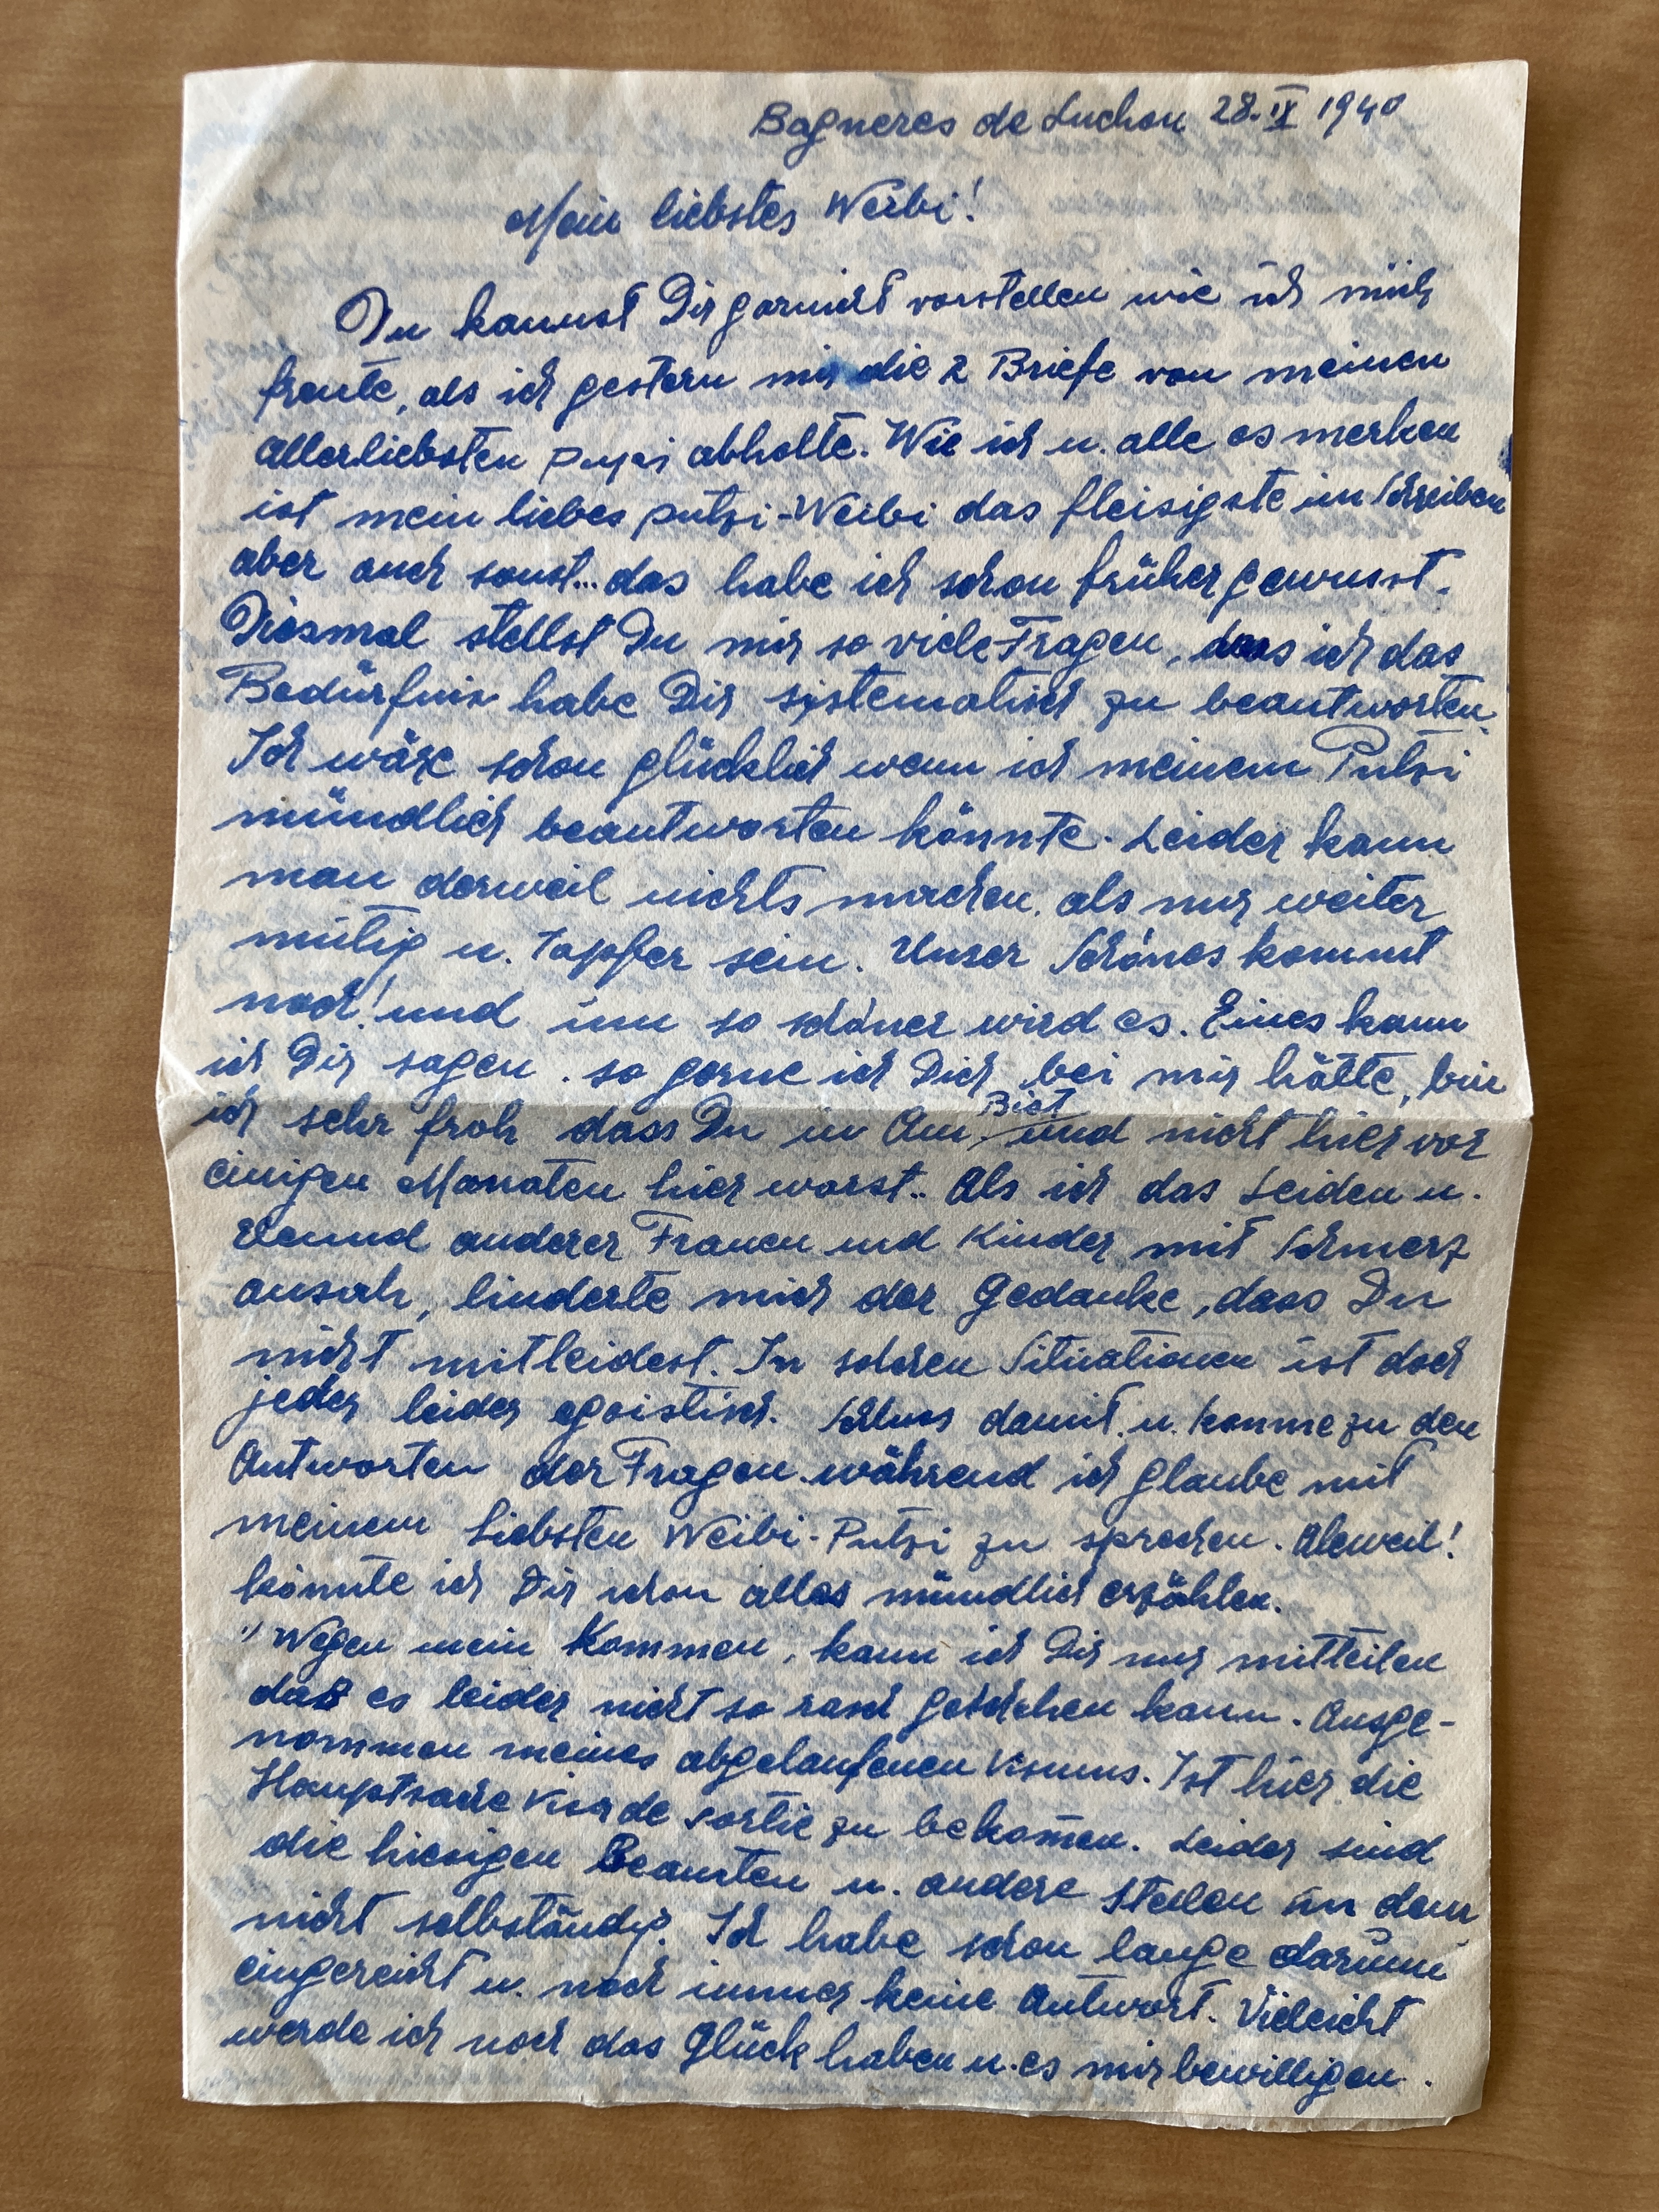 Bagneres de Luchon 28.IX 1940
Mein liebstes Weibi!
Du kannst Dir garnicht vorstellen wie ich mich
freute, als ich gestern mir die 2 Briefe von meinen
allerliebsten putzi abholte. Wie ich u. alle es merken
ist mein liebes putzi-Weibi das fleisigste im Schreiben
aber auch sonst... das habe ich schon früher gewusst.
Diesmal stellst Du mir so viele Fragen, dass ich das
Bedürfnis habe Dir systematisch zu beantworten.
Ich wäre schon glücklich wenn ich meinem Putzi
mündlich beantworten könnte. Leider kann
man derweil nichts machen, als nur weiter
mutig u. tapfer sein. Unser Schönes kommt
noch! und um so schöner wird es. Eines kann
ich Dir sagen. so gerne ich Dich bei mir hätte, bin
ich sehr froh dass Du in Am. bist und nicht hier vor
einigen Monaten hier warst.. Als ich das Leiden u.
Elend anderer Frauen und Kinder mit Schmerz
ansah, linderte mich der Gedanke, dass Du
nicht mitleidest. In solchen Situationen ist doch
jeder leider egoistisch. Schluss damit. u. komme zu den
Antworten der Fragen während ich glaube mit
meinem Liebsten Weibi-Putzi zu sprechen. Aleweil!
könnte ich Dir schon alles mündlich erzählen.
" Wegen mein Kommen, kann ich Dir nur mitteilen
daß es leider nicht so rasch geschehen kann. Ausge-
nommen meines abgelaufenen Visums. Ist hier die
Hauptsache Visa de sortie zu bekomen. Leider sind
die hiesigen Beamten u. andere Stellen in dem
nicht selbständig. Ich habe schon lange darum
eingereicht u. noch immer keine Antwort. Vieleicht
werde ich noch das Glück haben u. es mir bewilligen.